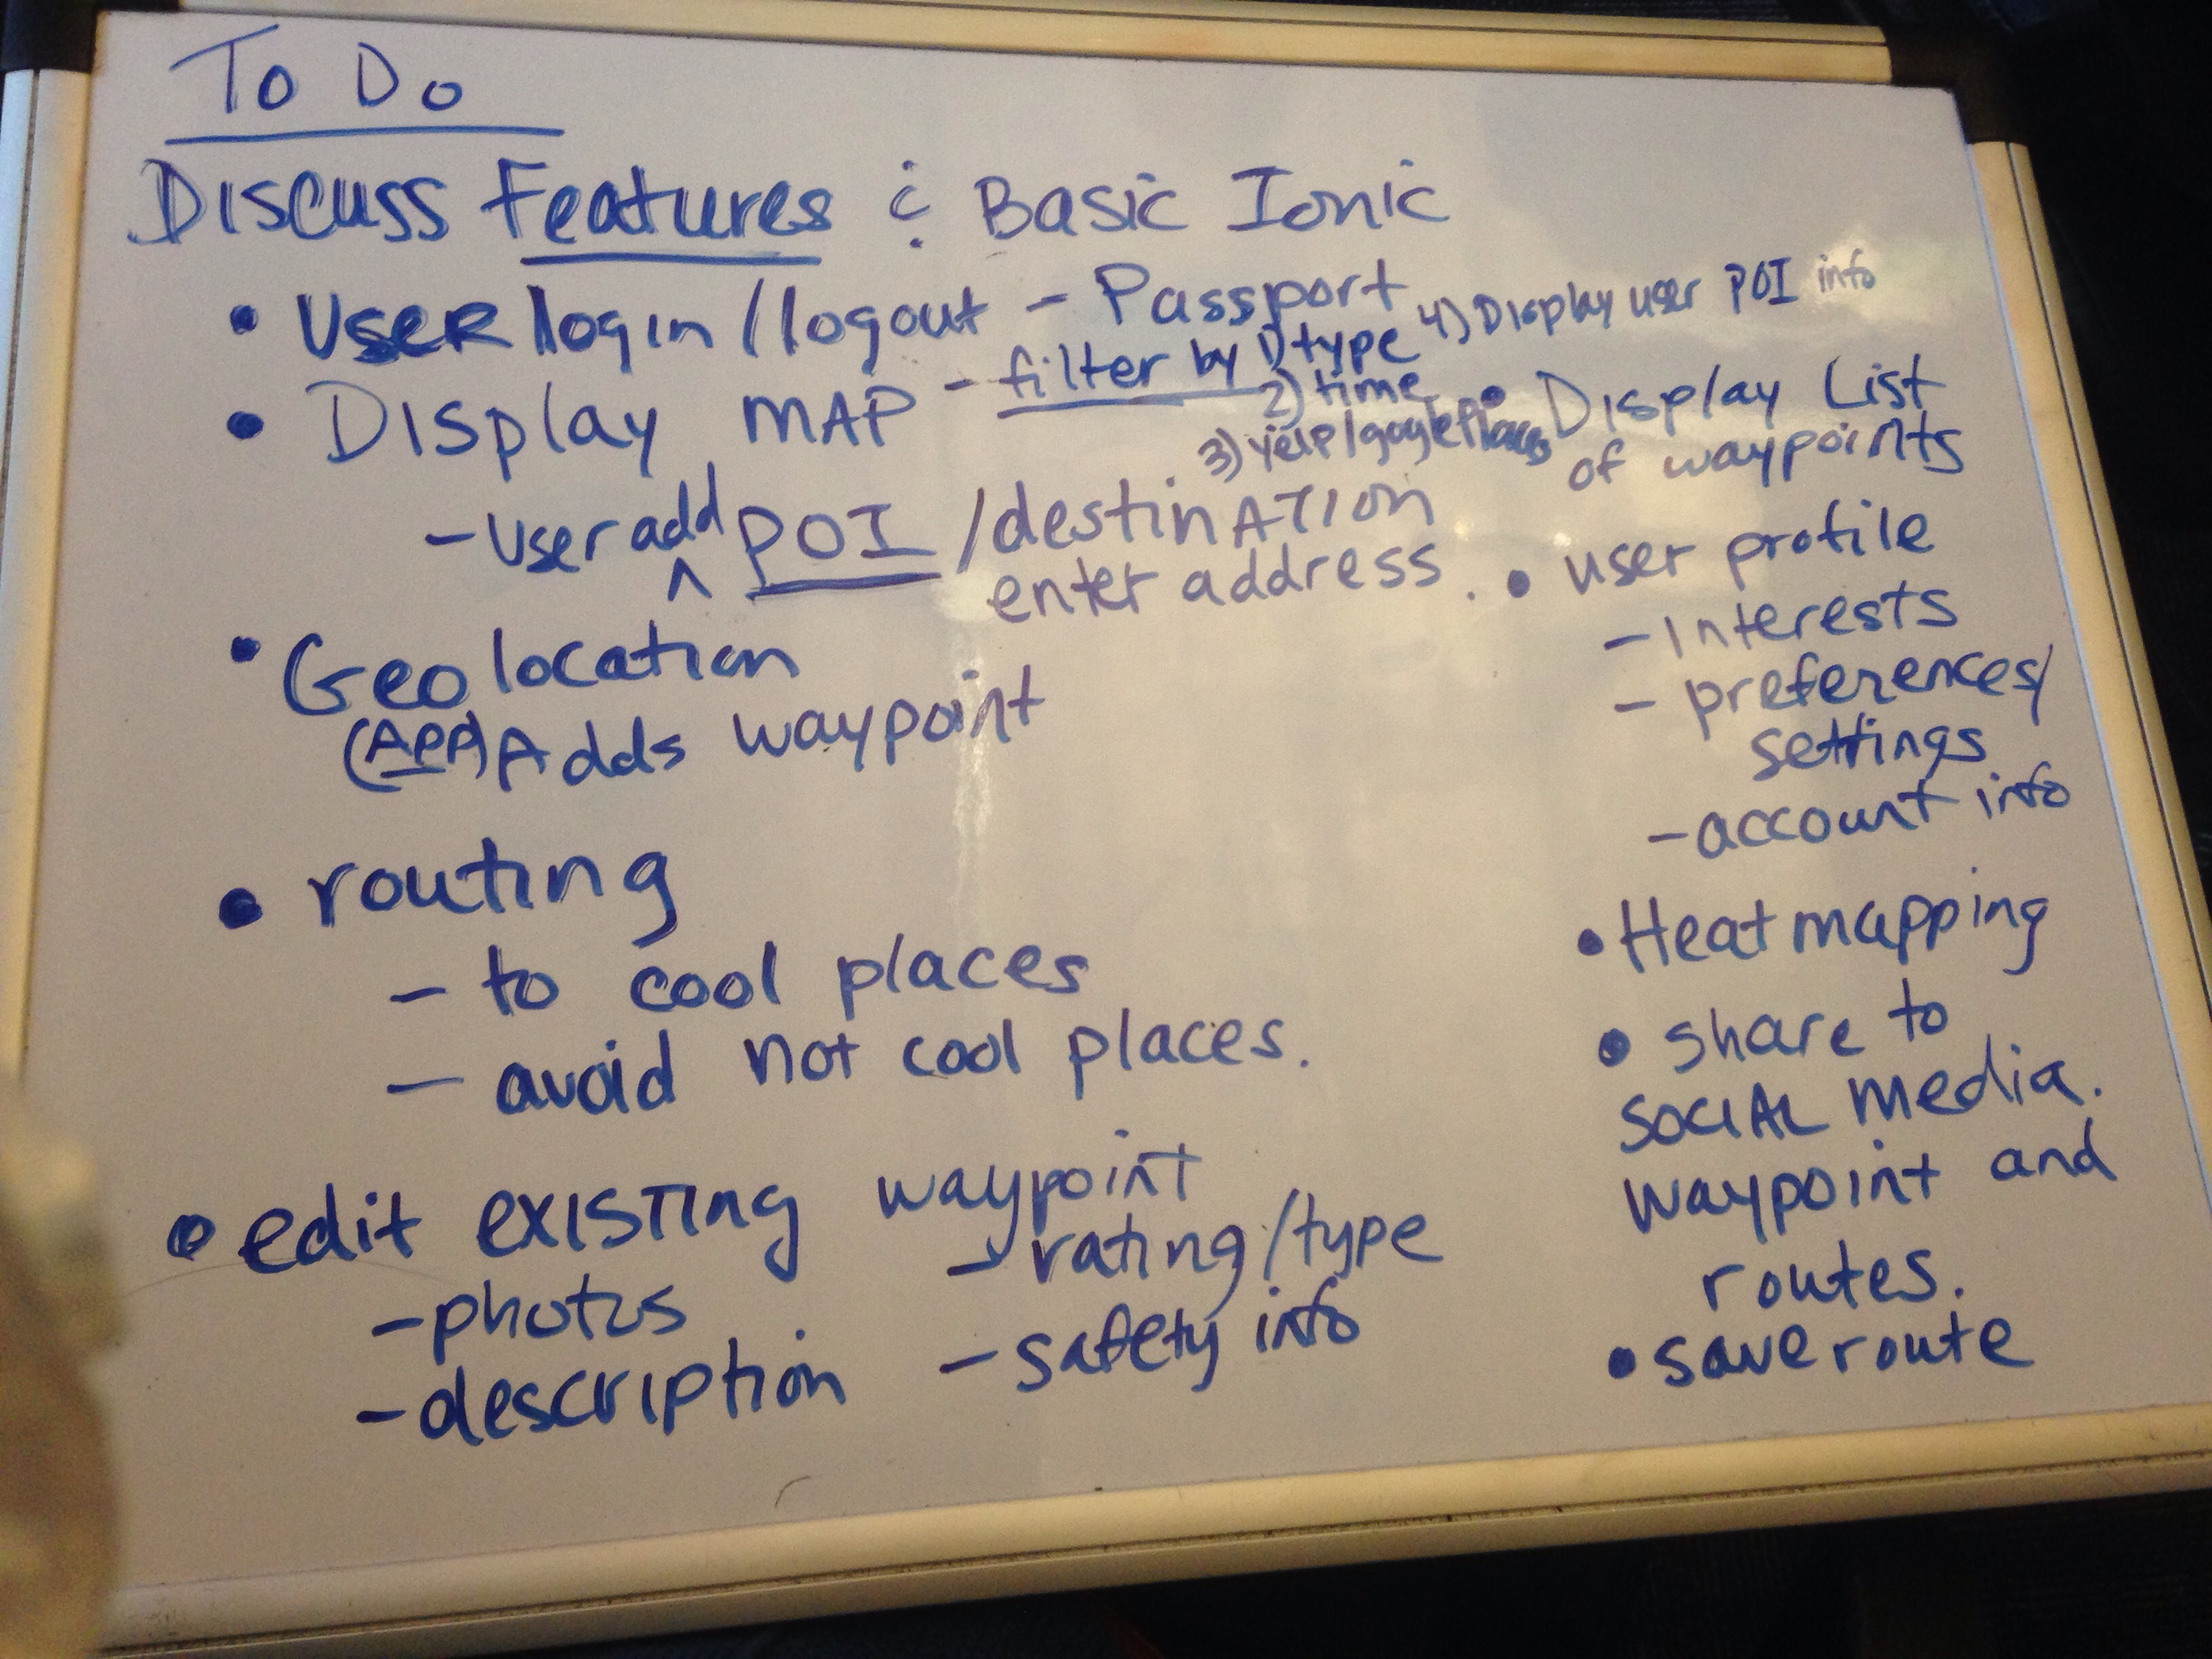 To Do
Discuss Features & Basic Ionic
• User login/logout - Passport
• Display MAP - filter by 1) type
2) time
3) yelp/google Places
4) Display user POI info
- User add POI /destination
enter address.
• Geolocation
(APP) Adds waypoint
• routing
- to cool places
- avoid not cool places.
• edit existing waypoint
- photos
- description
- rating/type
- safety info
• Display List
of waypoints
• user profile
- Interests
- preferences/
settings
- account info
• Heatmapping
• share to
social media.
waypoint and
routes.
• save route